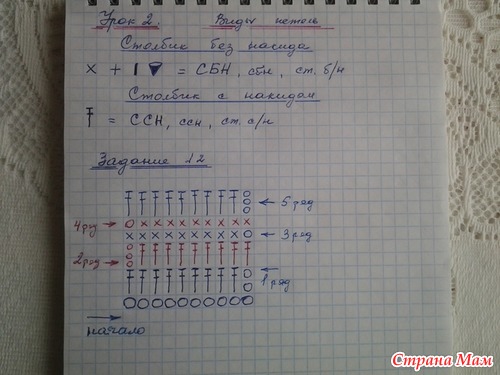 Урок 2. Виды петель
Столбик без накида
х + I ▼ = СБН, сбн, ст. б/н
Столбик с накидом
= ССН, ссн, ст. с/н
Задание 12
5 ряд
4 ряд
3 ряд
2 ряд
1 ряд
начало
Страна Мам